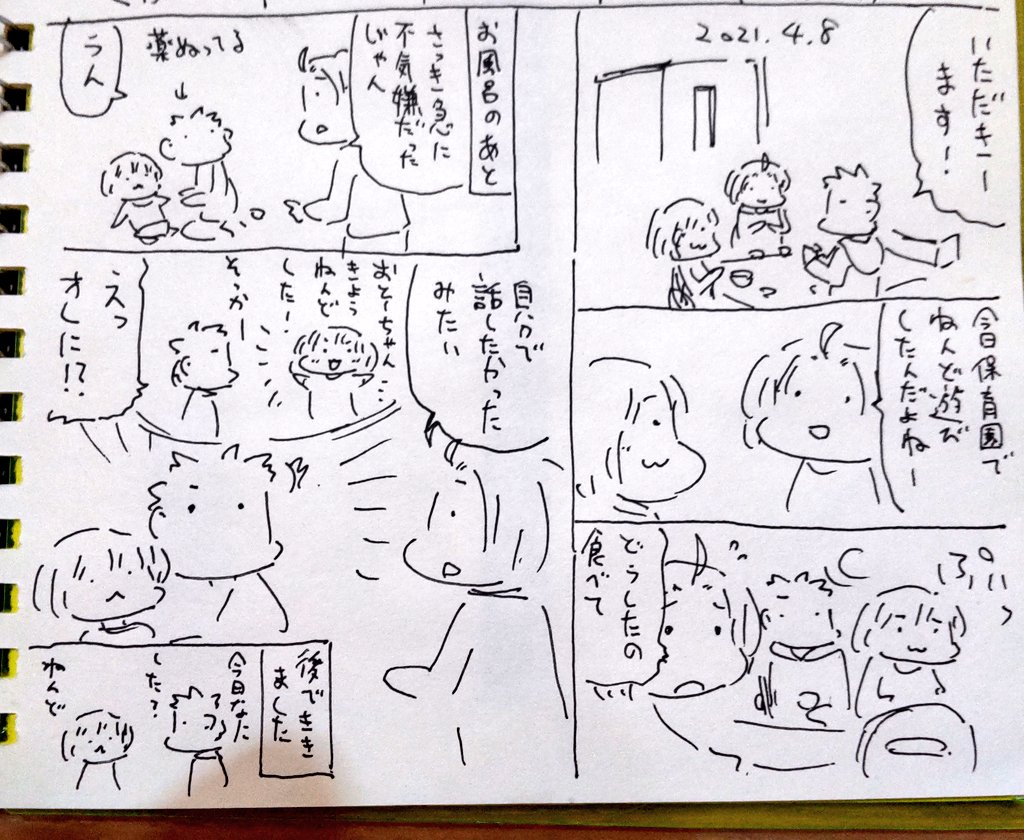 2021.4.8
いただきー
ます!
今日保育園で
ねんど遊び
したんだよねー
ぷいっ
どうしたの
食べて
お風呂のあと
さっき急に
不気嫌だった
じゃん
薬ぬってる
うん
自分で
話したかった
みたい
おとーちゃん…
きょう
ねんど
した!
そっかー
えっ
オレに!?
後できき
ました
今日なに
した?
ねんど